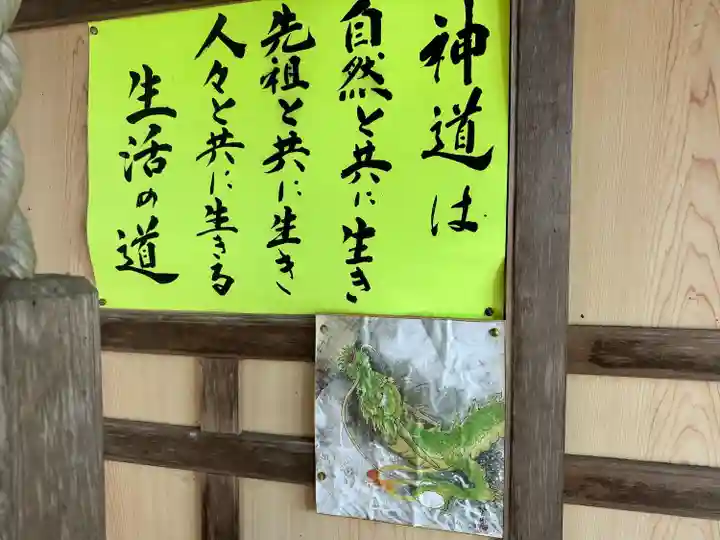 神道は
自然と共に生き
先祖と共に生き
人々と共に生きる
生活の道